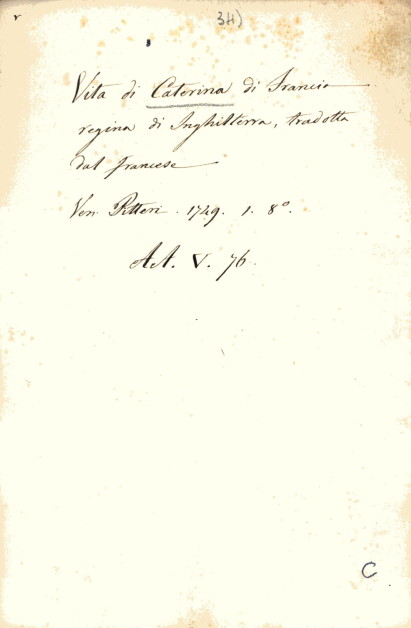 34)
Vita di Caterina di Francia
regina di Inghilterra, tradotta
dal francese
Ven. Pitteri. 1749. 1. 8°.
AA. V. 76.
C